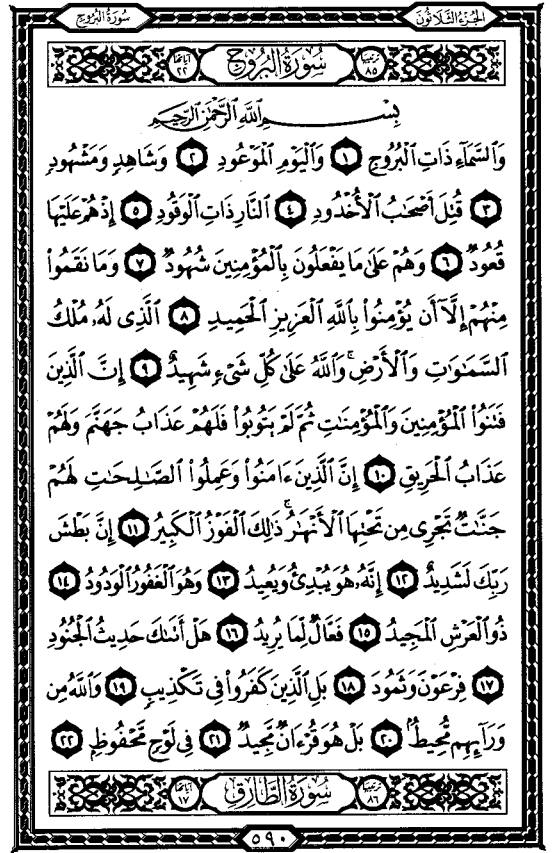 سُورَةُ البُرُوجِ
الجُزْءُ الثَّلَاثُونَ
ترتيبها ٨٥ سُورَةُ البُرُوجِ آياتها ٢٢
بِسْمِ ٱللَّهِ ٱلرَّحْمَٰنِ ٱلرَّحِيمِ
وَٱلسَّمَآءِ ذَاتِ ٱلْبُرُوجِ ١ وَٱلْيَوْمِ ٱلْمَوْعُودِ ٢ وَشَاهِدٍ وَمَشْهُودٍ
٣ قُتِلَ أَصْحَٰبُ ٱلْأُخْدُودِ ٤ ٱلنَّارِ ذَاتِ ٱلْوَقُودِ ٥ إِذْ هُمْ عَلَيْهَا
قُعُودٌ ٦ وَهُمْ عَلَىٰ مَا يَفْعَلُونَ بِٱلْمُؤْمِنِينَ شُهُودٌ ٧ وَمَا نَقَمُوا۟
مِنْهُمْ إِلَّآ أَن يُؤْمِنُوا۟ بِٱللَّهِ ٱلْعَزِيزِ ٱلْحَمِيدِ ٨ ٱلَّذِى لَهُۥ مُلْكُ
ٱلسَّمَٰوَٰتِ وَٱلْأَرْضِ ۚ وَٱللَّهُ عَلَىٰ كُلِّ شَىْءٍ شَهِيدٌ ٩ إِنَّ ٱلَّذِينَ
فَتَنُوا۟ ٱلْمُؤْمِنِينَ وَٱلْمُؤْمِنَٰتِ ثُمَّ لَمْ يَتُوبُوا۟ فَلَهُمْ عَذَابُ جَهَنَّمَ وَلَهُمْ
عَذَابُ ٱلْحَرِيقِ ١٠ إِنَّ ٱلَّذِينَ ءَامَنُوا۟ وَعَمِلُوا۟ ٱلصَّٰلِحَٰتِ لَهُمْ
جَنَّٰتٌ تَجْرِى مِن تَحْتِهَا ٱلْأَنْهَٰرُ ۚ ذَٰلِكَ ٱلْفَوْزُ ٱلْكَبِيرُ ١١ إِنَّ بَطْشَ
رَبِّكَ لَشَدِيدٌ ١٢ إِنَّهُۥ هُوَ يُبْدِئُ وَيُعِيدُ ١٣ وَهُوَ ٱلْغَفُورُ ٱلْوَدُودُ ١٤
ذُو ٱلْعَرْشِ ٱلْمَجِيدُ ١٥ فَعَّالٌ لِّمَا يُرِيدُ ١٦ هَلْ أَتَىٰكَ حَدِيثُ ٱلْجُنُودِ
١٧ فِرْعَوْنَ وَثَمُودَ ١٨ بَلِ ٱلَّذِينَ كَفَرُوا۟ فِى تَكْذِيبٍ ١٩ وَٱللَّهُ مِن
وَرَآئِهِم مُّحِيطٌۢ ٢٠ بَلْ هُوَ قُرْءَانٌ مَّجِيدٌ ٢١ فِى لَوْحٍ مَّحْفُوظٍۭ ٢٢
ترتيبها ٨٦ سُورَةُ الطَّارِقِ آياتها ١٧
٥٩٠